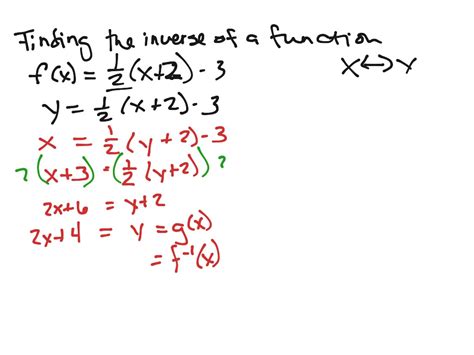 Finding the inverse of a function
f(x) = 1/2 (x+2) - 3
x ↔ y
y = 1/2 (x+2) - 3
x = 1/2 (y+2) - 3
2 (x+3) = (1/2 (y+2)) 2
2x+6 = y+2
2x+4 = y = g(x)
= f⁻¹(x)